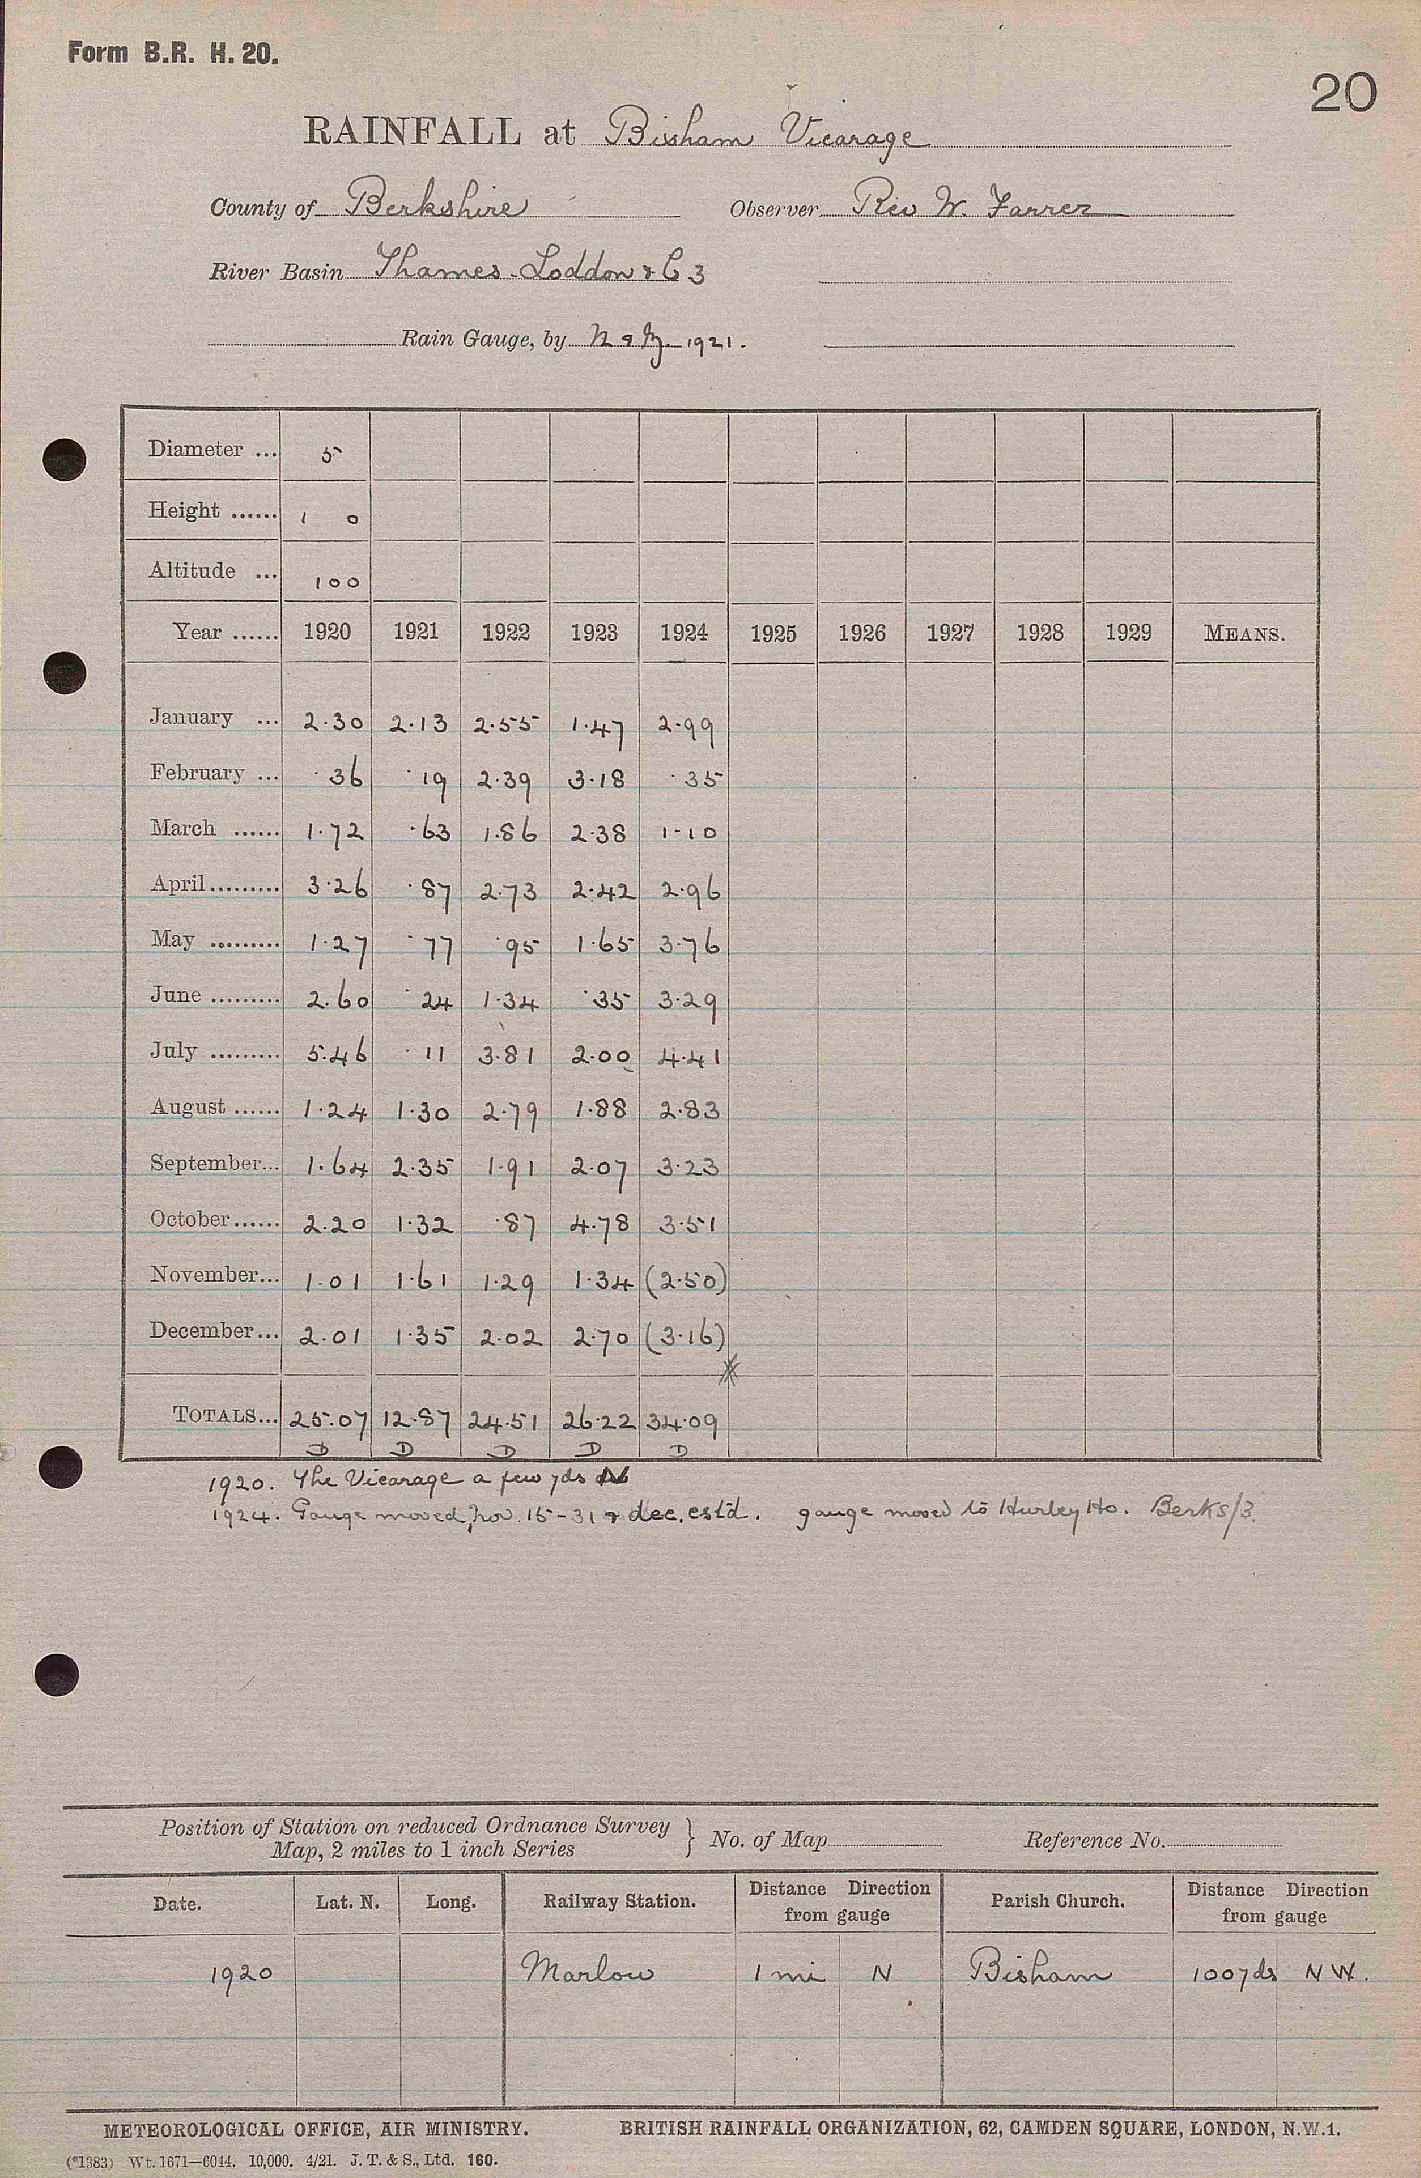 Form B.R. H. 20.
20
RAINFALL at Bisham Vicarage
County of Berkshire Observer Rev W. Farrer
River Basin Thames-Loddon & C 3
Rain Gauge, by N & Z 1921.
Diameter ... 5
Height ...... 1 0
Altitude ... 100
Year ...... 1920 1921 1922 1923 1924 1925 1926 1927 1928 1929 MEANS.
January ... 2.30 2.13 2.55 1.47 2.99
February ... .36 .19 2.39 3.18 .35
March ...... 1.72 .63 1.86 2.38 1.10
April......... 3.26 .87 2.73 2.42 2.96
May ......... 1.27 .77 .95 1.65 3.76
June ......... 2.60 .24 1.34 .35 3.29
July ......... 5.46 .11 3.81 2.00 4.41
August ...... 1.24 1.30 2.79 1.88 2.83
September... 1.64 2.35 1.91 2.07 3.23
October...... 2.20 1.32 .87 4.78 3.51
November... 1.01 1.61 1.29 1.34 (2.50)
December... 2.01 1.35 2.02 2.70 (3.16)
TOTALS... 25.07 12.87 24.51 26.22 34.09
D D D D D
1920. The Vicarage a few yds
1924. Gauge moved, Nov. 15-31 & dec. est'd. gauge moved to Hurley Ho. Berks/3.
Position of Station on reduced Ordnance Survey
Map, 2 miles to 1 inch Series } No. of Map Reference No.
Date. Lat. N. Long. Railway Station. Distance Direction from gauge Parish Church. Distance Direction from gauge
1920 Marlow 1 mi N Bisham 100 yds NW.
METEOROLOGICAL OFFICE, AIR MINISTRY. BRITISH RAINFALL ORGANIZATION, 62, CAMDEN SQUARE, LONDON, N.W.1.
(*1383) Wt. 1671—6044. 10,000. 4/21. J. T. & S., Ltd. 160.